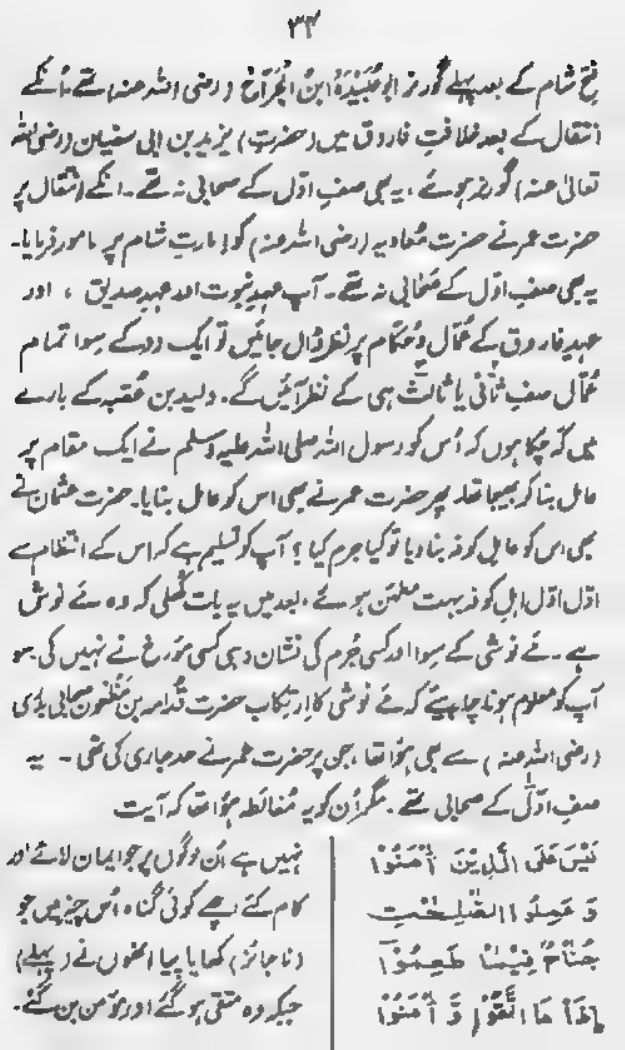 ۳۴
فتح شام کے بعد پہلے گورنر ابو عُبَیْدَۃُ ابنُ الْجَرَّاحْ (رضی اللہ عنہ) تھے۔ اُنکے
انتقال کے بعد خلافتِ فاروق میں (حضرت) یزید بن ابی سفیان (رضی اللہ
تعالیٰ عنہ) گورنر ہوئے، یہ بھی صفِ اوّل کے صحابی نہ تھے۔ انکے انتقال پر
حضرت عمر نے حضرت مُعاویہ (رضی اللہ عنہ) کو اِمارتِ شام پر مامور فرمایا۔
یہ بھی صفِ اوّل کے صَحَابی نہ تھے۔ آپ عہدِ نبوت اور عہدِ صدیق ، اور
عہدِ فاروق کے عُمّال وحُکّام پر نظر ڈال جائیں تو ایک دو کے سِوا تمام
عُمّال صفِ ثانی یا ثالث ہی کے نظر آئیں گے۔ ولید بن عُقبہ کے بارے
میں کہہ چکا ہوں کہ اُس کو رسول اللہ صلی اللہ علیہ وسلم نے ایک مقام پر
عامل بنا کر بھیجا تھا۔ پھر حضرت عمر نے بھی اس کو عامل بنایا۔ حضرت عثمان نے
بھی اس کو عاملِ کوفہ بنا دیا تو کیا جرم کیا؟ آپ کو تسلیم ہے کہ اس کے انتظام سے
اوّل اوّل اہلِ کوفہ بہت مطمئن ہوئے، بعد میں یہ بات کُھلی کہ وہ مے نوش
ہے۔ مے نوشی کے سوا اور کسی جُرم کی نشان دہی کسی مؤرخ نے نہیں کی۔ سو
آپ کو معلوم ہونا چاہیئے کہ مے نوشی کا اِرتکاب حضرت قُدامہ بن مَظْعُون صحابی بدری
(رضی اللہ عنہ) سے بھی ہُوا تھا، جن پر حضرت عمر نے حد جاری کی تھی۔ یہ
صفِ اوّل کے صحابی تھے۔ مگر اُن کو یہ مُغالَطہ ہوُا تھا کہ آیت
لَیْسَ عَلَی الَّذِیْنَ اٰمَنُوْا
وَ عَمِلُوا الصّٰلِحٰتِ
جُنَاحٌ فِیْمَا طَعِمُوْۤا
اِذَا مَا اتَّقَوْا وَّ اٰمَنُوْا
نہیں ہے اُن لوگوں پر جو ایمان لائے اور
کام کئے اچھے کوئی گناہ اُس چیز میں جو
(ناجائز) کھایا پیا اُنھوں نے (پہلے)
جبکہ وہ متقی ہو گئے اور مؤمن بن گئے۔